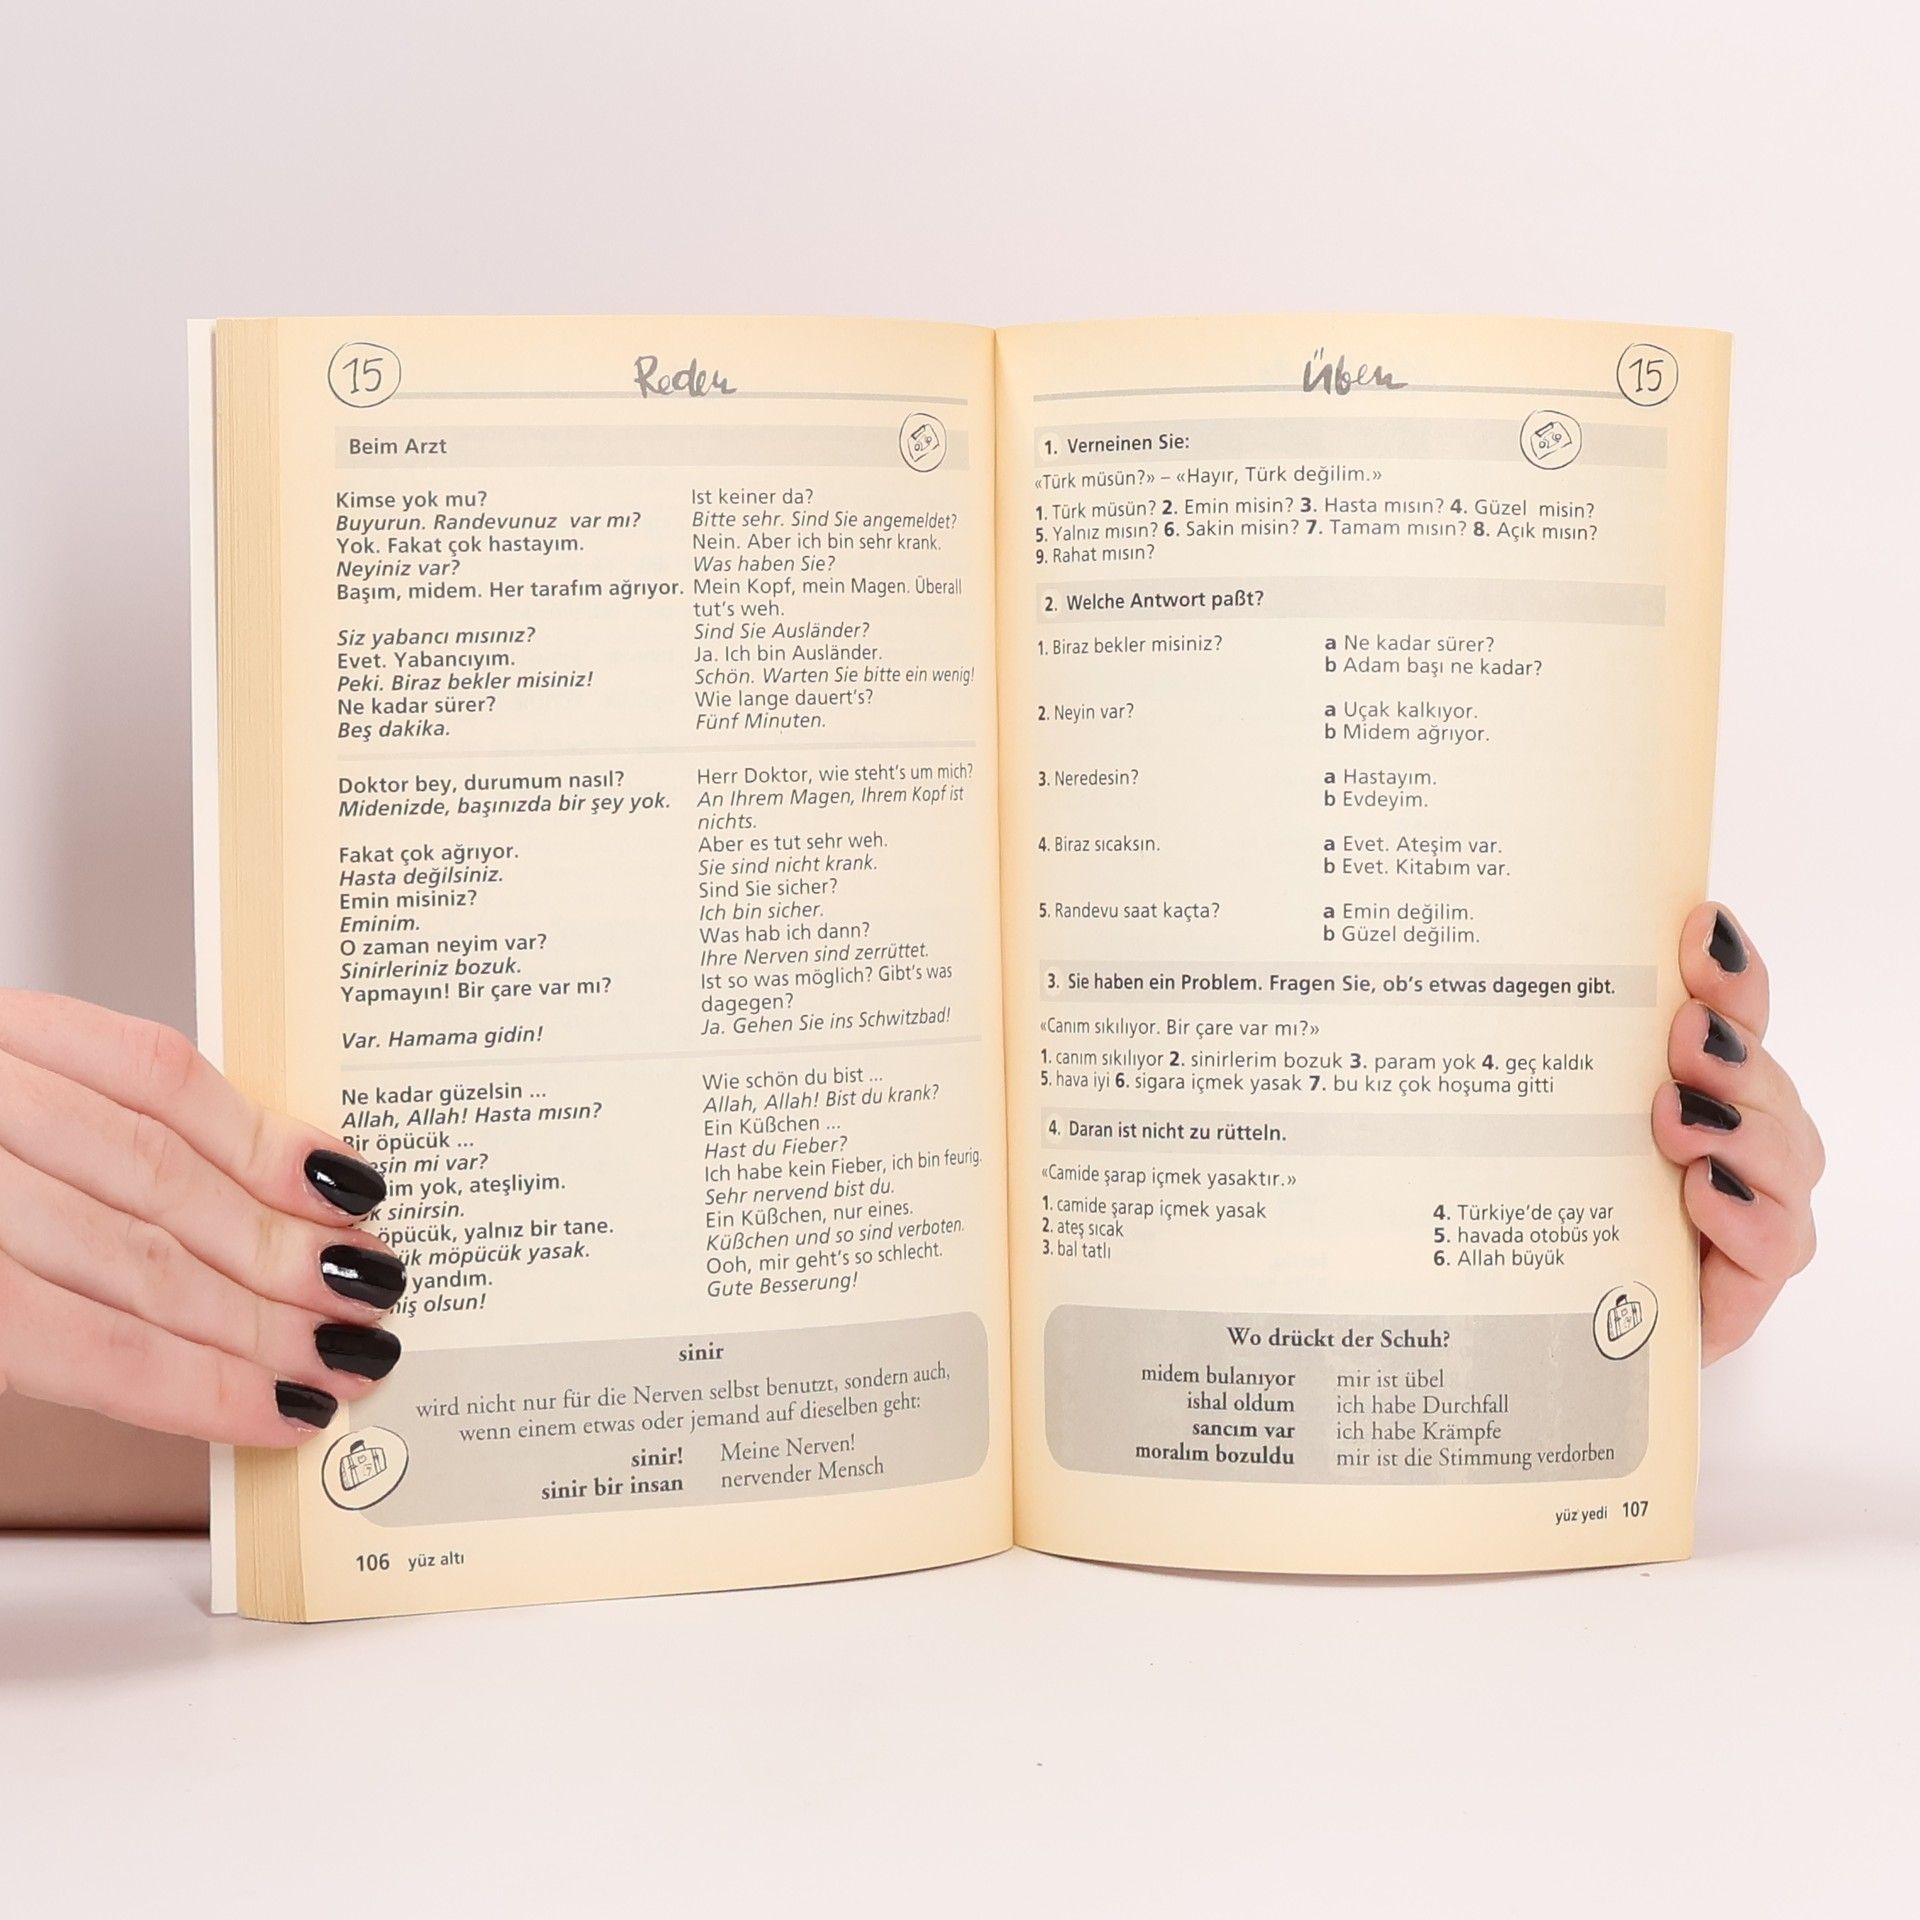 15
Reden
Beim Arzt
Kimse yok mu?
Buyurun. Randevunuz var mı?
Yok. Fakat çok hastayım.
Neyiniz var?
Başım, midem. Her tarafım ağrıyor.
Siz yabancı mısınız?
Evet. Yabancıyım.
Peki. Biraz bekler misiniz!
Ne kadar sürer?
Beş dakika.
Ist keiner da?
Bitte sehr. Sind Sie angemeldet?
Nein. Aber ich bin sehr krank.
Was haben Sie?
Mein Kopf, mein Magen. Überall
tut's weh.
Sind Sie Ausländer?
Ja. Ich bin Ausländer.
Schön. Warten Sie bitte ein wenig!
Wie lange dauert's?
Fünf Minuten.
Doktor bey, durumum nasıl?
Midenizde, başınızda bir şey yok.
Fakat çok ağrıyor.
Hasta değilsiniz.
Emin misiniz?
Eminim.
O zaman neyim var?
Sinirleriniz bozuk.
Yapmayın! Bir çare var mı?
Var. Hamama gidin!
Herr Doktor, wie steht's um mich?
An Ihrem Magen, Ihrem Kopf ist
nichts.
Aber es tut sehr weh.
Sie sind nicht krank.
Sind Sie sicher?
Ich bin sicher.
Was hab ich dann?
Ihre Nerven sind zerrüttet.
Ist so was möglich? Gibt's was
dagegen?
Ja. Gehen Sie ins Schwitzbad!
Ne kadar güzelsin ...
Allah, Allah! Hasta mısın?
Bir öpücük ...
mi var?
yok, ateşliyim.
sinirsin.
öpücük, yalnız bir tane.
möpücük yasak.
yandım.
olsun!
Wie schön du bist ...
Allah, Allah! Bist du krank?
Ein Küßchen ...
Hast du Fieber?
Ich habe kein Fieber, ich bin feurig.
Sehr nervend bist du.
Ein Küßchen, nur eines.
Küßchen und so sind verboten.
Ooh, mir geht's so schlecht.
Gute Besserung!
sinir
wird nicht nur für die Nerven selbst benutzt, sondern auch,
wenn einem etwas oder jemand auf dieselben geht:
sinir! Meine Nerven!
sinir bir insan nervender Mensch
106 yüz altı
Üben
15
1. Verneinen Sie:
«Türk müsün?» – «Hayır, Türk değilim.»
1. Türk müsün? 2. Emin misin? 3. Hasta mısın? 4. Güzel misin?
5. Yalnız mısın? 6. Sakin misin? 7. Tamam mısın? 8. Açık mısın?
9. Rahat mısın?
2. Welche Antwort paßt?
1. Biraz bekler misiniz? a Ne kadar sürer?
b Adam başı ne kadar?
2. Neyin var? a Uçak kalkıyor.
b Midem ağrıyor.
3. Neredesin? a Hastayım.
b Evdeyim.
4. Biraz sıcaksın. a Evet. Ateşim var.
b Evet. Kitabım var.
5. Randevu saat kaçta? a Emin değilim.
b Güzel değilim.
3. Sie haben ein Problem. Fragen Sie, ob's etwas dagegen gibt.
«Canım sıkılıyor. Bir çare var mı?»
1. canım sıkılıyor 2. sinirlerim bozuk 3. param yok 4. geç kaldık
5. hava iyi 6. sigara içmek yasak 7. bu kız çok hoşuma gitti
4. Daran ist nicht zu rütteln.
«Camide şarap içmek yasaktır.»
1. camide şarap içmek yasak
2. ateş sıcak
3. bal tatlı
4. Türkiye'de çay var
5. havada otobüs yok
6. Allah büyük
Wo drückt der Schuh?
midem bulanıyor mir ist übel
ishal oldum ich habe Durchfall
sancım var ich habe Krämpfe
moralım bozuldu mir ist die Stimmung verdorben
yüz yedi 107